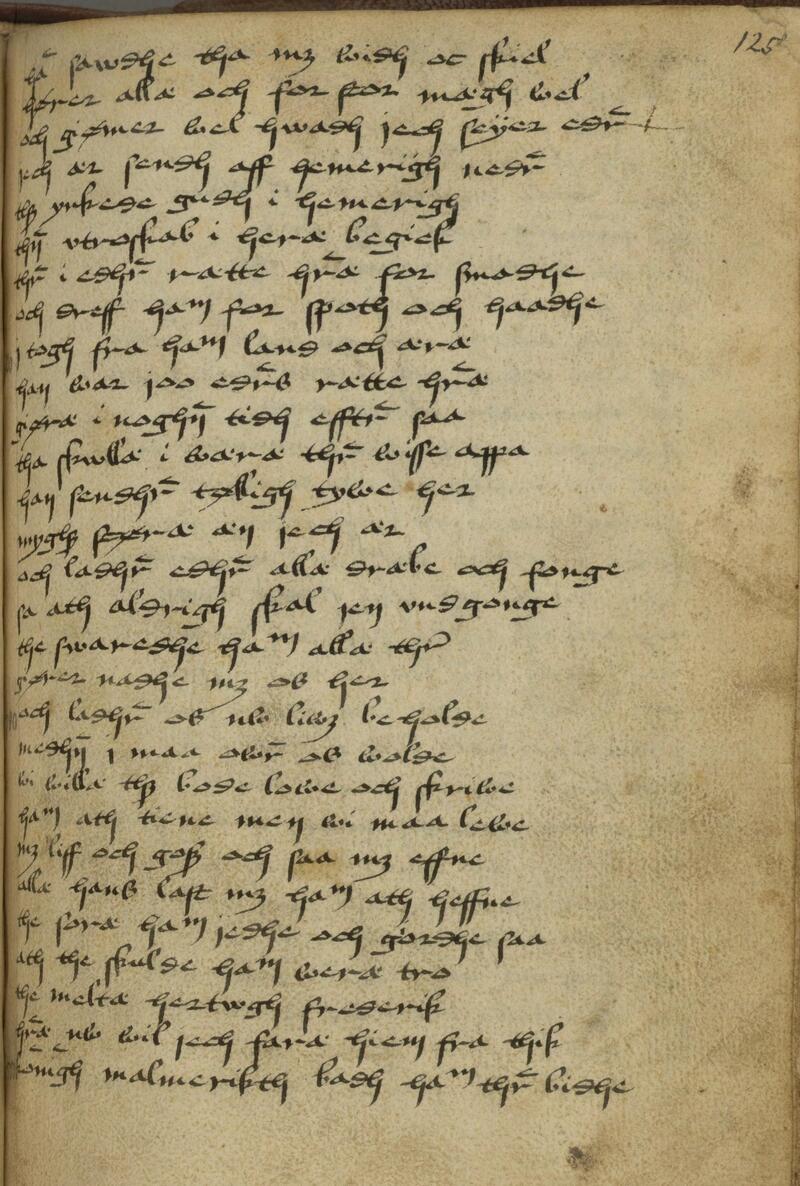 125
hā sawdhe tha mꝫ widh oc skiel
hører allæ och for stor mægh wel
och gømer wel hwadh jech seyer edr̄
jech ær sendh aff hemerigh nedr̄
thꝫ ynkede gudh i hemerigh
thn̄ vtroskab i heræ begick
thr̄ i edhr̄ rætte hr̄æ for smadhe
och dreff ham for spoth och haadhe
i togh fra ham land och æræ
han war joo edr̄s rætte hr̄æ
gøræ i noghn̄ tidh efftr̄ saa
tha skwllæ i wæræ thr̄ wisse appa
han sendhr̄ tølligh tywe her
myghꝫ støræ æn jech ær
och ladhr̄ edhr̄ allæ dræbe och fonge
sa ath aldrigh skal jen vndgonge
the swaredhe ham allæ thr̄
gører nadhe mꝫ os her
och ladhr̄ os nw liwꝫ beholde
medhn̄ j maa owr̄ os wolde
wi willæ thꝫ bode lowe och skriwe
ham ath tiene men wi maa lewe
mꝫ liff och gosꝫ och saa mꝫ effne
allæ hans last mꝫ ham ath heffne
the soræ ham jedhe och giordhe saa
ath the skulde ham weræ tro
the meltæ hertwgh frederik
hr̄æ nw wil jech faræ hiem fra thik
koni̅gh malmerikth badh ham thr̄ bidhe